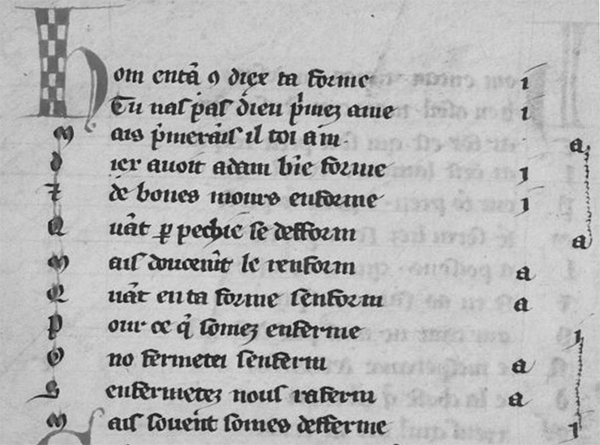 Hom entā ꝯ diex ta forme i
Tu nas pas dieu p̄mez ame i
M ais p̄merais il toi am. a
D iex auoit adam bn̄ forme i
⁊ de bones mours enforme i
Q uāt ꝑ pechie se defform a
M ais doucem̄t le renform a
Q uāt en ta forme senform a
P our ce q̄ somez enferme i
O no fermetei senferm a
S enfermetez nous raferm a
M ais souent somes defferme i